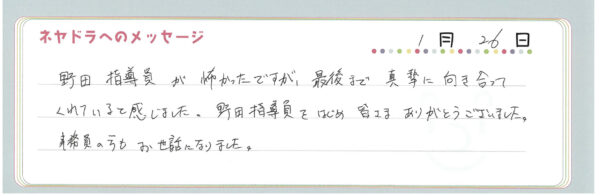 ネヤドラへのメッセージ
1月26日
野田 指導員 が 怖かったですが、最後まで 真摯に 向き合って
くれていると感じました。野田指導員を はじめ 皆さま ありがとうございました。
事務員の方も お世話になりました。